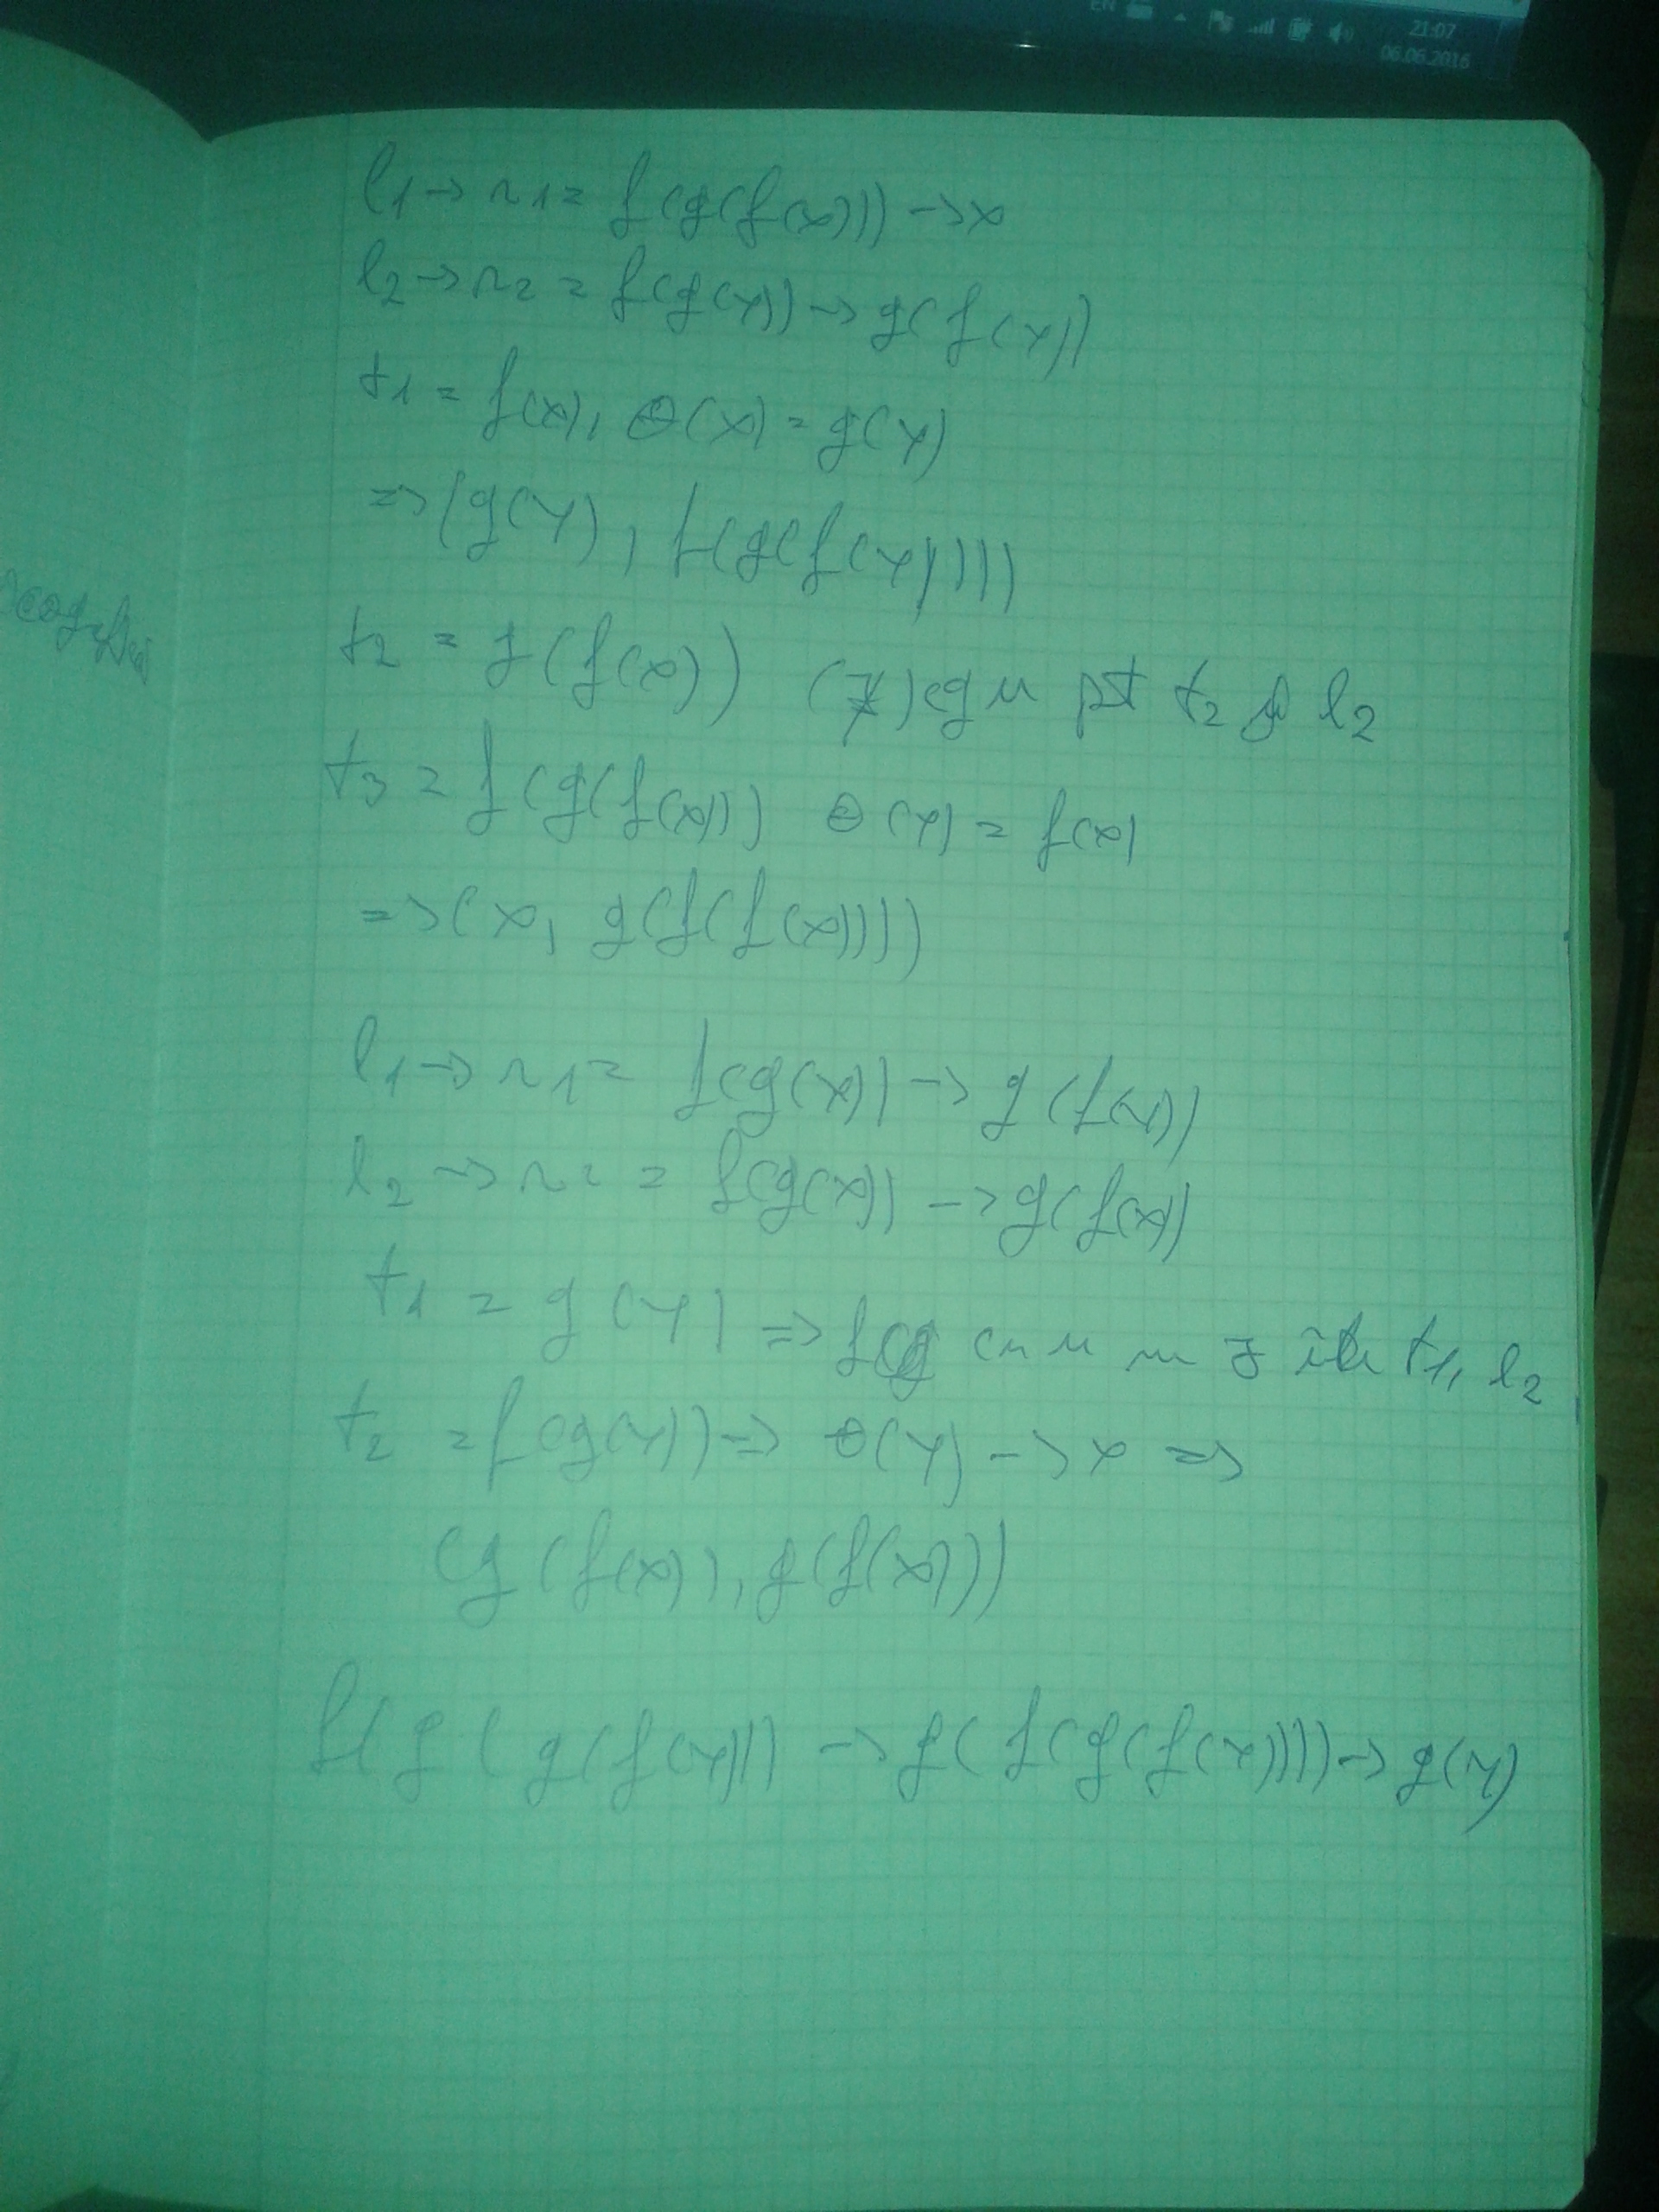 EN 21:07
06.06.2016
l1 → r1 = f(g(f(x))) → x
l2 → r2 = f(g(y)) → g(f(y))
t1 = f(x), θ(x) = g(y)
=> (g(y), f(g(f(y))))
t2 = g(f(x)) (∄) cgu pt t2 și l2
t3 = f(g(f(x))) θ(y) = f(x)
=> (x, g(f(f(x))))
l1 → r1 = f(g(y)) → g(f(y))
l2 → r2 = f(g(x)) → g(f(x))
t1 = g(y) => t1, l2
t2 = f(g(y)) => θ(y) → x =>
(g(f(x)), g(f(x)))
f(g(g(f(y))) → g(f(g(f(y)))) → g(y)